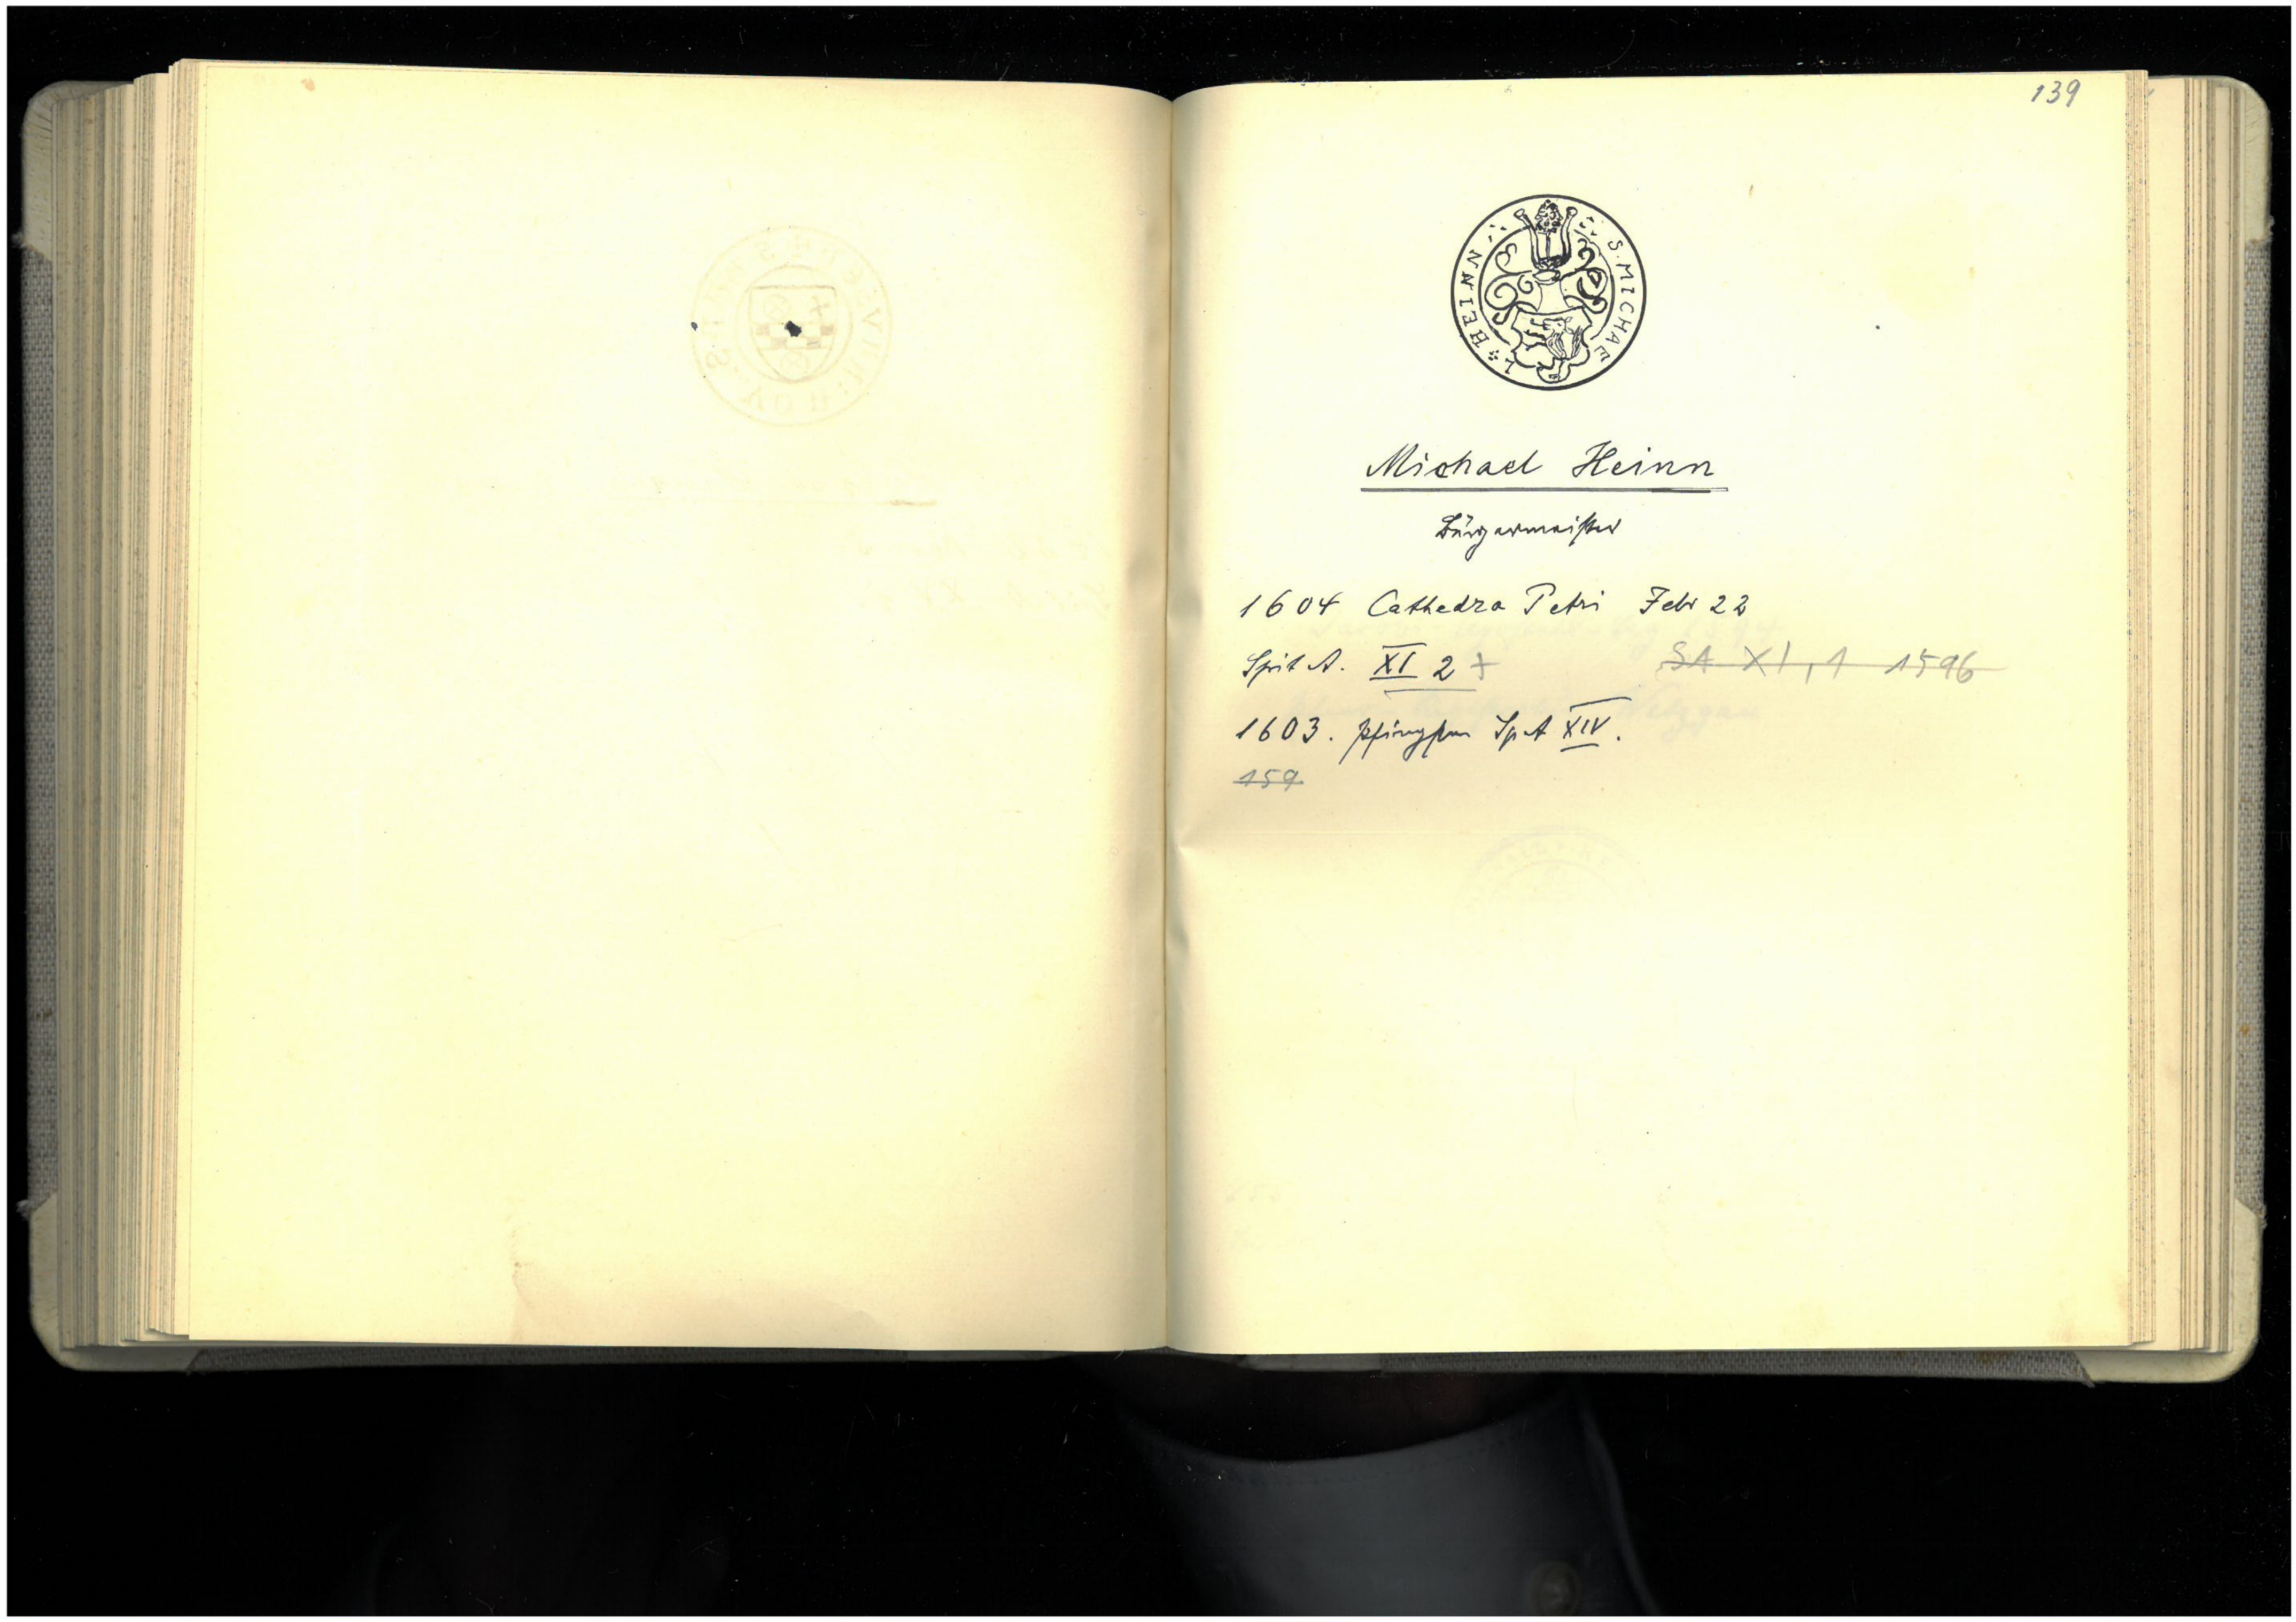 139
S. MICHAEL * HEINN
Michael Heinn
Bürgermeister
1604 Cathedra Petri Febr 22
Spit A. XI 2 +
SA XI, 1 1596
1603. Pfingsten Sp A XIV.
159